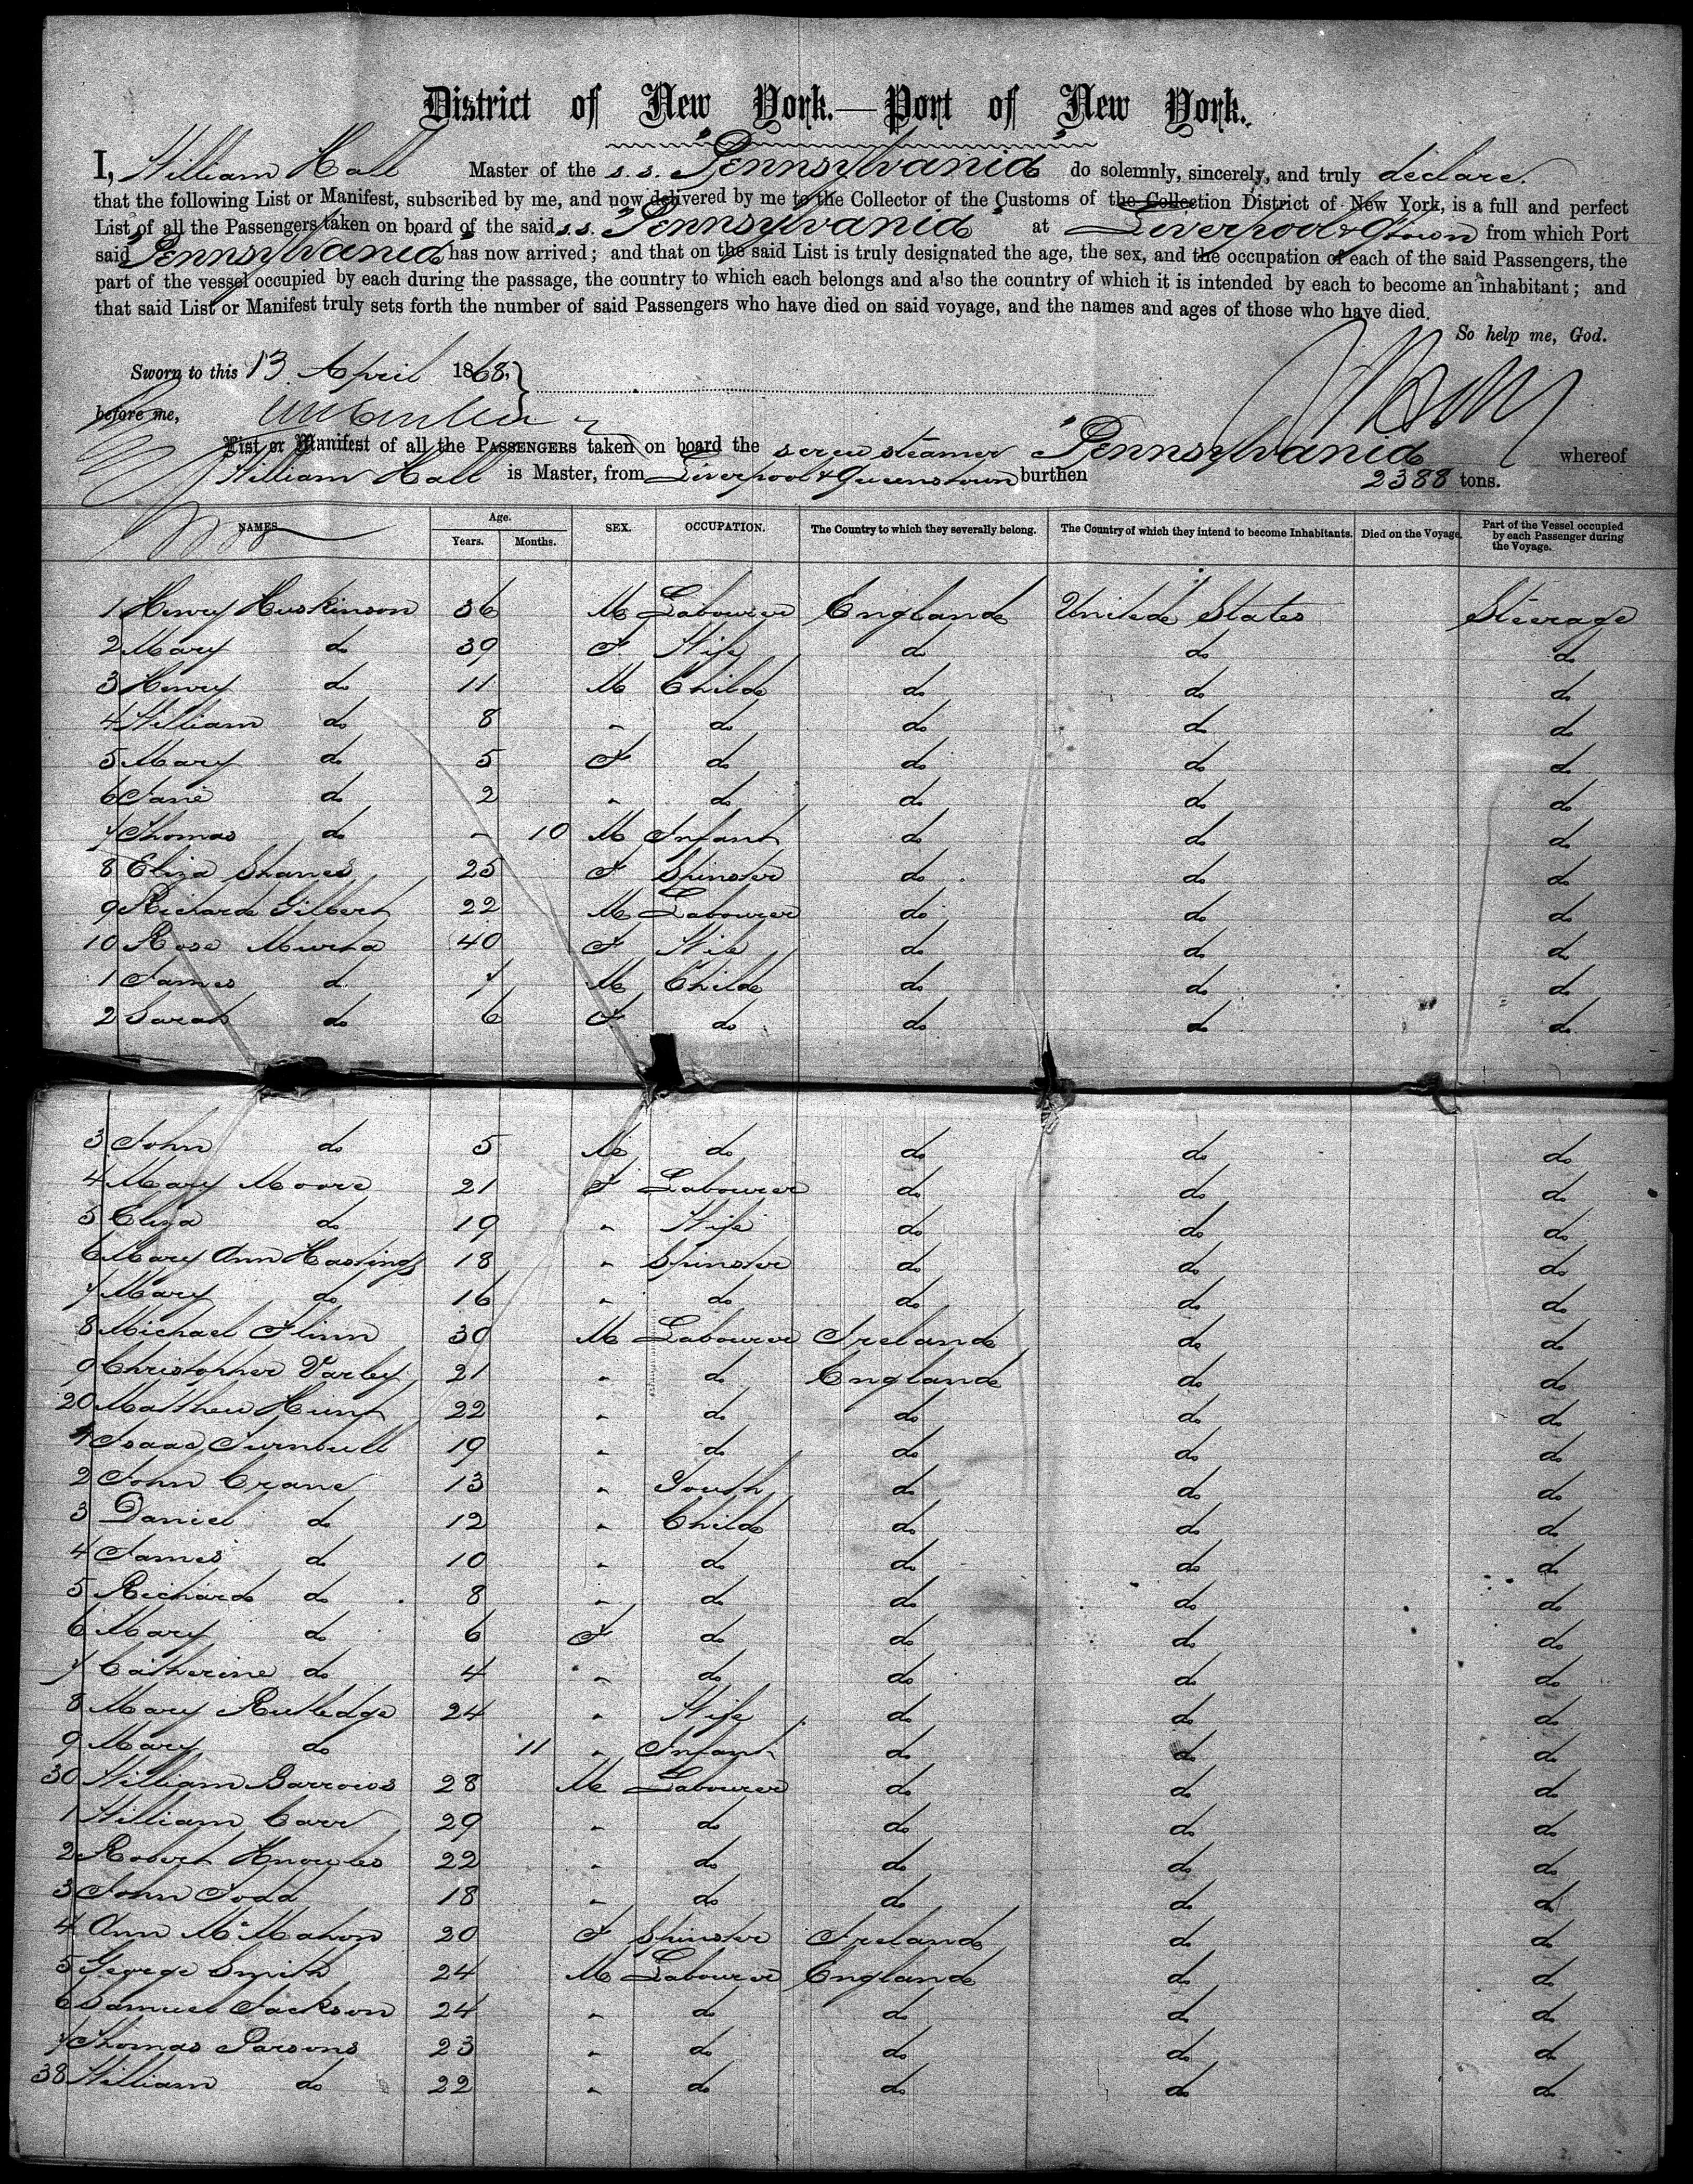 District of New York.—Port of New York.
I, William Hall Master of the s.s. "Pennsylvania" do solemnly, sincerely, and truly declare.
that the following List or Manifest, subscribed by me, and now delivered by me to the Collector of the Customs of the Collection District of New York, is a full and perfect
List of all the Passengers taken on board of the said s.s. "Pennsylvania" at Liverpool & Qtown from which Port
said "Pennsylvania" has now arrived; and that on the said List is truly designated the age, the sex, and the occupation of each of the said Passengers, the
part of the vessel occupied by each during the passage, the country to which each belongs and also the country of which it is intended by each to become an inhabitant; and
that said List or Manifest truly sets forth the number of said Passengers who have died on said voyage, and the names and ages of those who have died.
So help me, God.
Sworn to this 13 April 1868,
before me,
List or Manifest of all the PASSENGERS taken on board the screw steamer "Pennsylvania whereof
William Hall is Master, from Liverpool & Queenstown burthen 2388 tons.
NAMES Age. Years. Months. SEX. OCCUPATION. The Country to which they severally belong. The Country of which they intend to become Inhabitants. Died on the Voyage. Part of the Vessel occupied by each Passenger during the Voyage.
1 Henry Huskinson 36 M Labourer England United States Steerage
2 Mary do 39 F Wife do do do
3 Henry do 11 M Child do do do
4 William do 8 " do do do do
5 Mary do 5 F do do do do
6 Jane do 2 " do do do do
7 Thomas do - 10 M Infant do do do
8 Eliza 25 F Spinster do do do
9 Richard Gilbert 22 M Labourer do do do
10 Rose Murtha 40 F Wife do do do
1 James do 7 M Child do do do
2 Sarah do 6 F do do do do
3 John do 5 M do do do do
4 Mary Moore 21 F Labourer do do do
5 Eliza do 19 " Wife do do do
6 Mary Ann Hastings 18 " Spinster do do do
7 Mary do 16 " do do do do
8 Michael Flinn 30 M Labourer Ireland do do
9 Christopher Varley 21 " do England do do
20 Matthew Hunt 22 " do do do do
1 Isaac Turnbull 19 " do do do do
2 John Crane 13 " Youth do do do
3 Daniel do 12 " Child do do do
4 James do 10 " do do do do
5 Richard do 8 " do do do do
6 Mary do 6 F do do do do
7 Catherine do 4 " do do do do
8 Mary Rutledge 24 " Wife do do do
9 Mary do 11 " Infant do do do
30 William Barrows 28 M Labourer do do do
1 William Carr 29 " do do do do
2 Robert Knowles 22 " do do do do
3 John Todd 18 " do do do do
4 Ann McMahon 20 F Spinster Ireland do do
5 George Smith 24 M Labourer England do do
6 Samuel Jackson 24 " do do do do
7 Thomas Parsons 23 " do do do do
38 William do 22 " do do do do